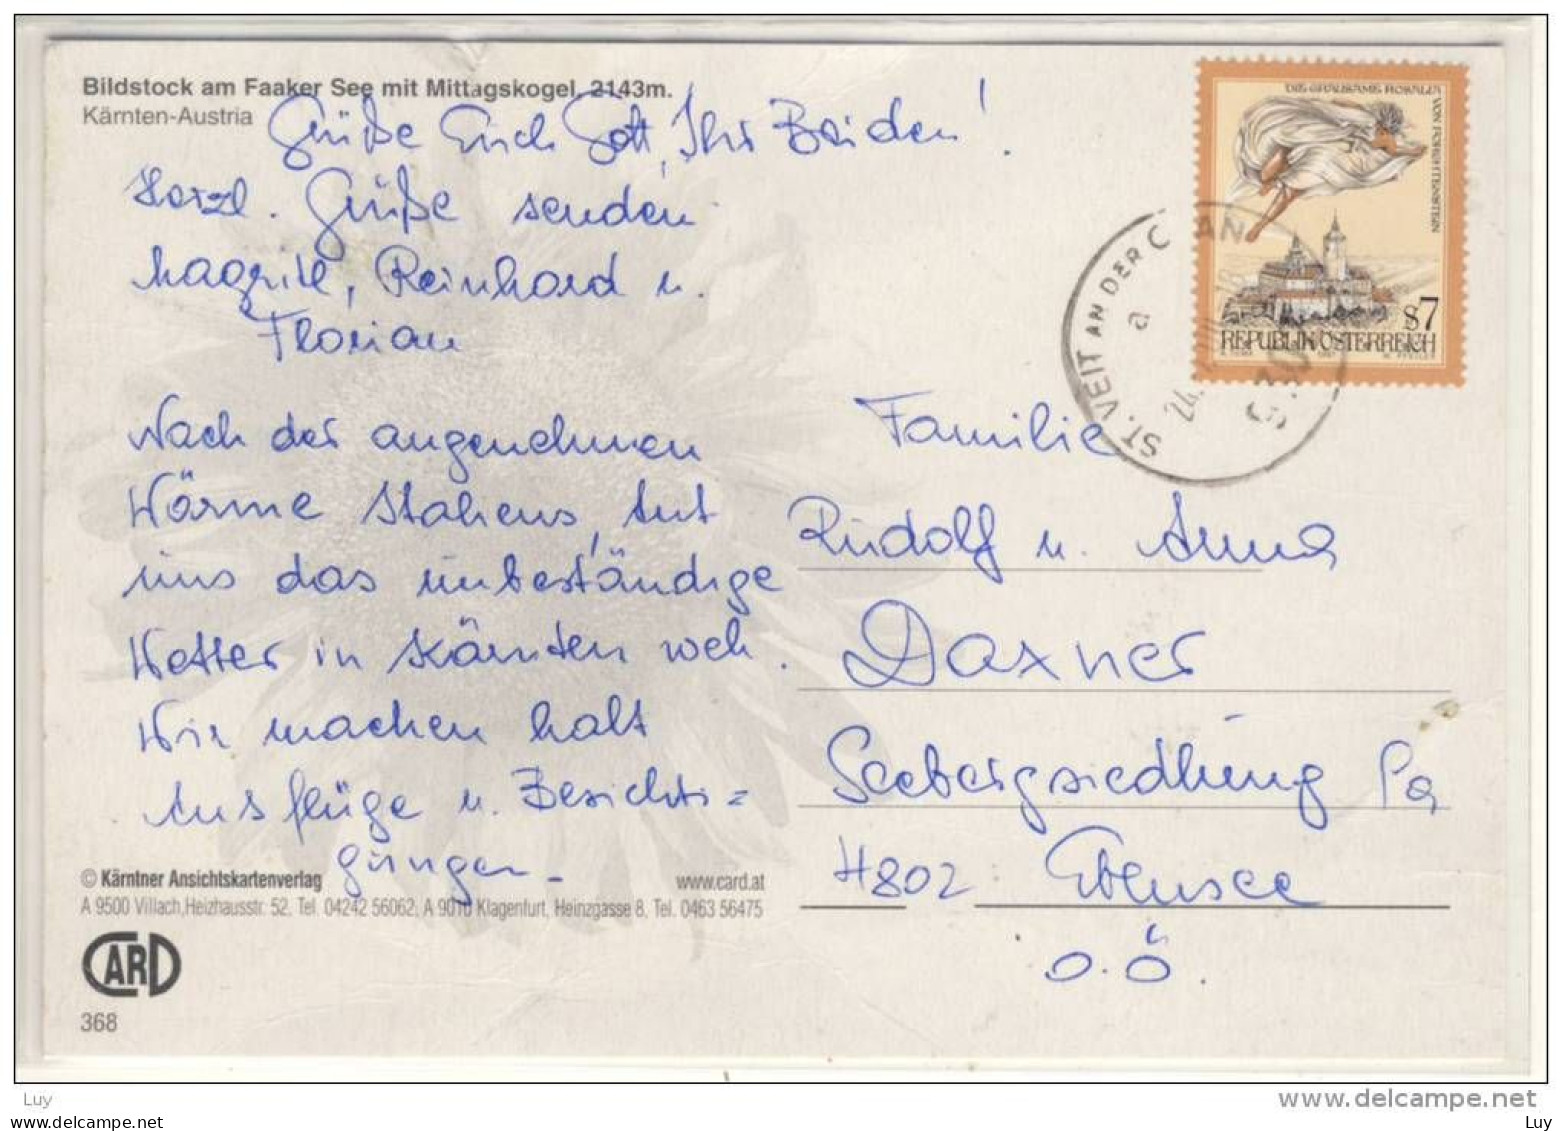 Bildstock am Faaker See mit Mittagskogel, 2143m.
Kärnten-Austria
Grüße Euch Gott, Ihr Beiden!
Herzl. Grüße senden
Magritt, Reinhard u.
Florian
Nach der angenehmen
Wärme Italiens, tut
uns das unbeständige
Wetter in Kärnten weh.
Wir machen halt
Ausflüge u. Besichti=
gungen_
© Kärntner Ansichtskartenverlag
www.card.at
A 9500 Villach, Heizhausstr. 52, Tel. 04242 56062, A 9010 Klagenfurt, Heinzgasse 8, Tel. 0463 56475
CARD
368
DIE GRAUSAME ROSALIA VON FORCHTENSTEIN
S7
REPUBLIK ÖSTERREICH
ST. VEIT AN DER G AN
a
Familie
Rudolf u. Anna
Daxner
Seebergsiedlung
4802 Ebensee
O.Ö.
Luy
www.delcampe.net
Luy
Luy